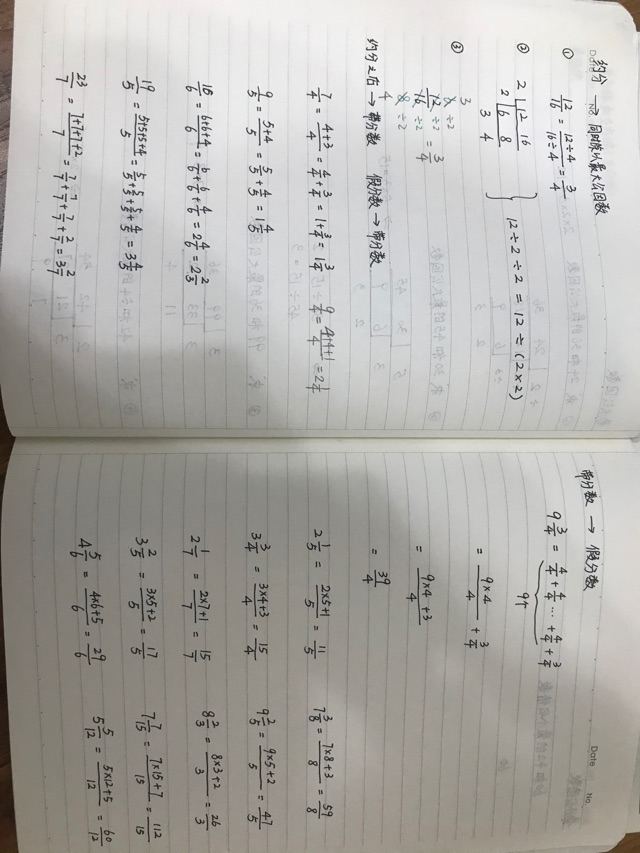 约分 → 同时除以最大公因数
① 12/16 = 12÷4/16÷4 = 3/4
② 2 | 12 16
2 | 6 8
3 4
12÷2÷2 = 12÷(2×2)
③ 12/16 ÷2 ÷2 = 3/4
6 ÷2
8 ÷2
3
4
约分之后 → 带分数 假分数 → 带分数
7/4 = 4+3/4 = 4/4 + 3/4 = 1 + 3/4 = 1 3/4
9/4 = 4+4+1/4 = 2 1/4
9/5 = 5+4/5 = 5/5 + 4/5 = 1 4/5
16/6 = 6+6+4/6 = 6/6 + 6/6 + 4/6 = 2 4/6 = 2 2/3
19/5 = 5+5+5+4/5 = 5/5 + 5/5 + 5/5 + 4/5 = 3 4/5
23/7 = 7+7+7+2/7 = 7/7 + 7/7 + 7/7 + 2/7 = 3 2/7
Date No.
带分数 → 假分数
9 3/4 = 4/4 + 4/4 … + 4/4 + 3/4
9个
= 9×4/4 + 3/4
= 9×4+3/4
= 39/4
2 1/5 = 2×5+1/5 = 11/5
7 3/8 = 7×8+3/8 = 59/8
3 3/4 = 3×4+3/4 = 15/4
9 2/5 = 9×5+2/5 = 47/5
2 1/7 = 2×7+1/7 = 15/7
8 2/3 = 8×3+2/3 = 26/3
3 2/5 = 3×5+2/5 = 17/5
7 7/15 = 7×15+7/15 = 112/15
4 5/6 = 4×6+5/6 = 29/6
5 5/12 = 5×12+5/12 = 60/12